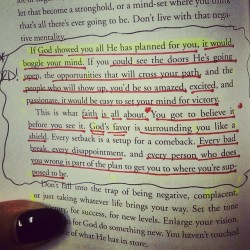 let that become a stronghold, or a mind-set where you think
that's all there's ever going to be. Don't live with that nega-
tive mentality.
If God showed you all He has planned for you, it would
boggle your mind. If you could see the doors He's going
open, the opportunities that will cross your path, and the
people who will show up, you'd be so amazed, excited, and
passionate, it would be easy to set your mind for victory.
This is what faith is all about. You got to believe it
before you see it. God's favor is surrounding you like a
shield. Every setback is a setup for a comeback. Every bad
break, every disappointment, and every person who does
you wrong is part of the plan to get you to where you're sup-
posed to be.
Don't fall into the trap of being negative, complacent,
or just taking whatever life brings your way. Set the tone
for success, for new levels. Enlarge your vision.
for God do something new. You haven't touched
of what He has in store.